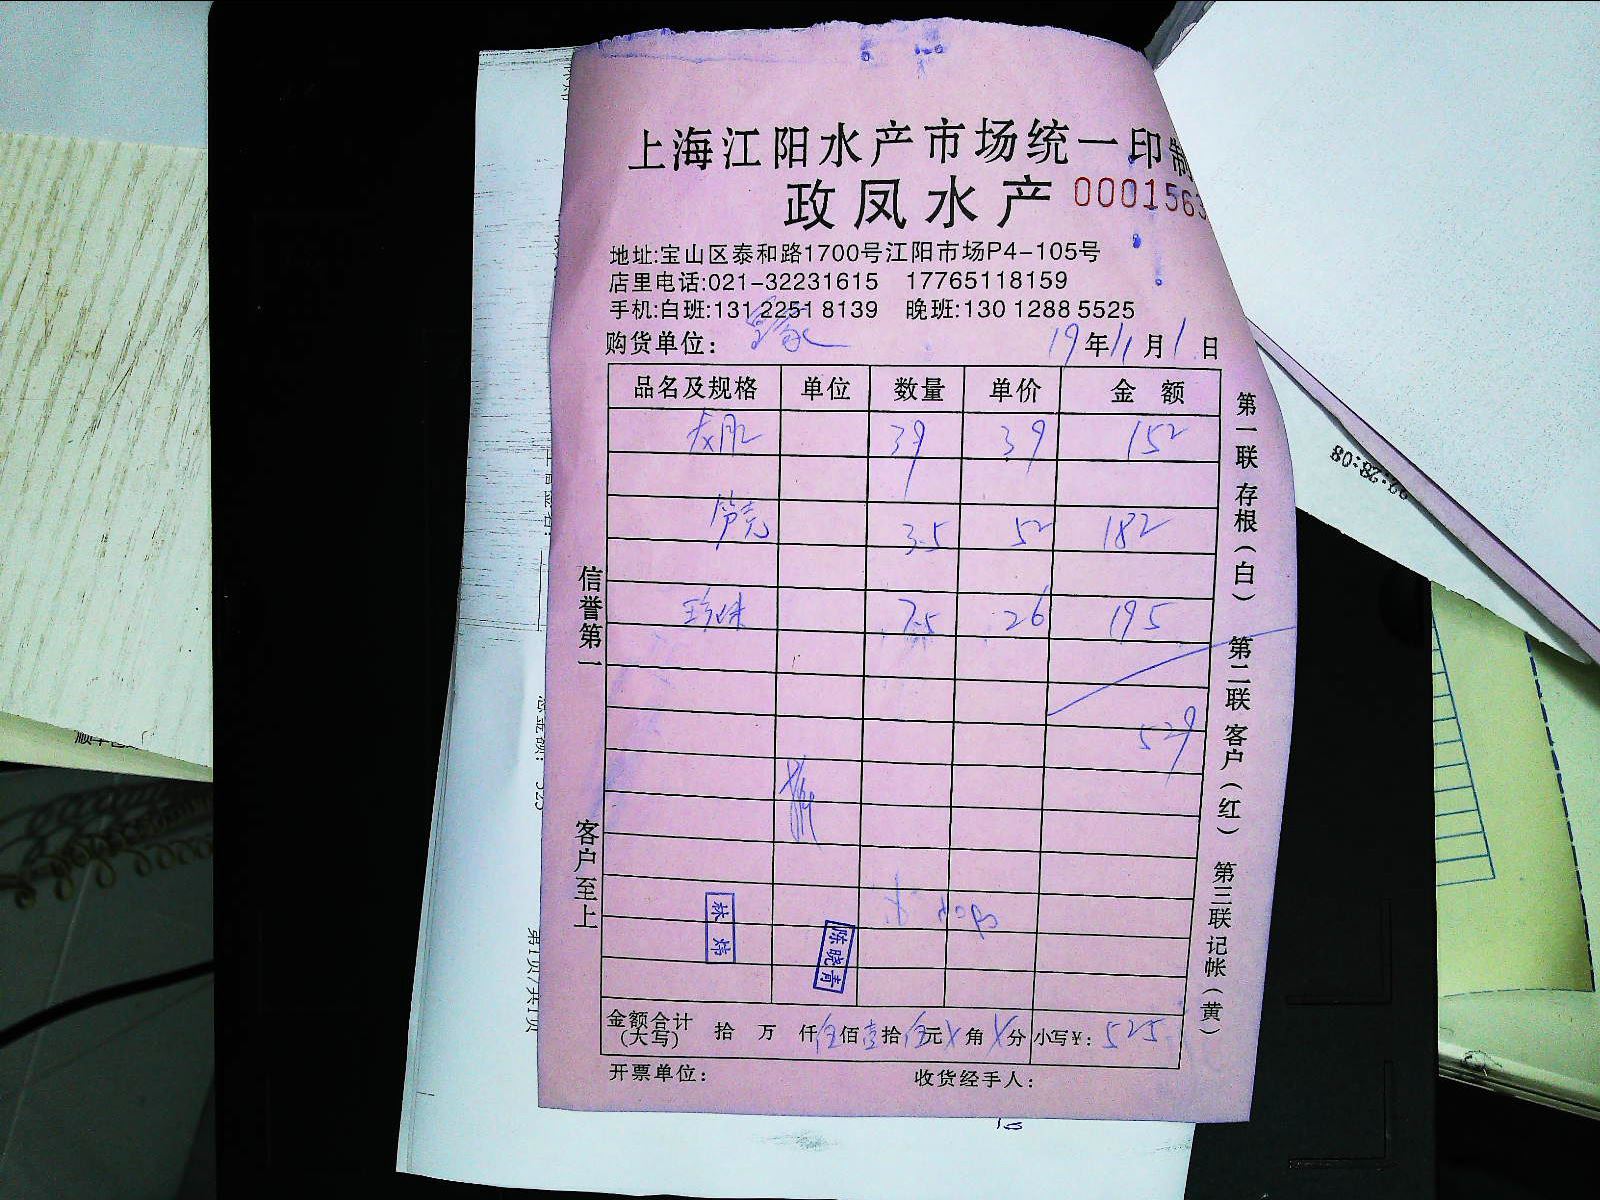 上海江阳水产市场统一印制
政凤水产 0001563
地址:宝山区泰和路1700号江阳市场P4-105号
店里电话:021-32231615 17765118159
手机:白班:131 2251 8139 晚班:130 1288 5525
购货单位: 19年11月1日
品名及规格 单位 数量 单价 金 额
39 39 152
笋壳 3.5 52 182
珍珠 7.5 26 195
529
林炜
陈晓青
金额合计(大写) 拾 万 仟伍佰 拾伍元 角 分 小写¥: 525
开票单位: 收货经手人:
信誉第一
客户至上
第一联 存根(白) 第二联 客户(红) 第三联 记帐(黄)
第1页/共1页